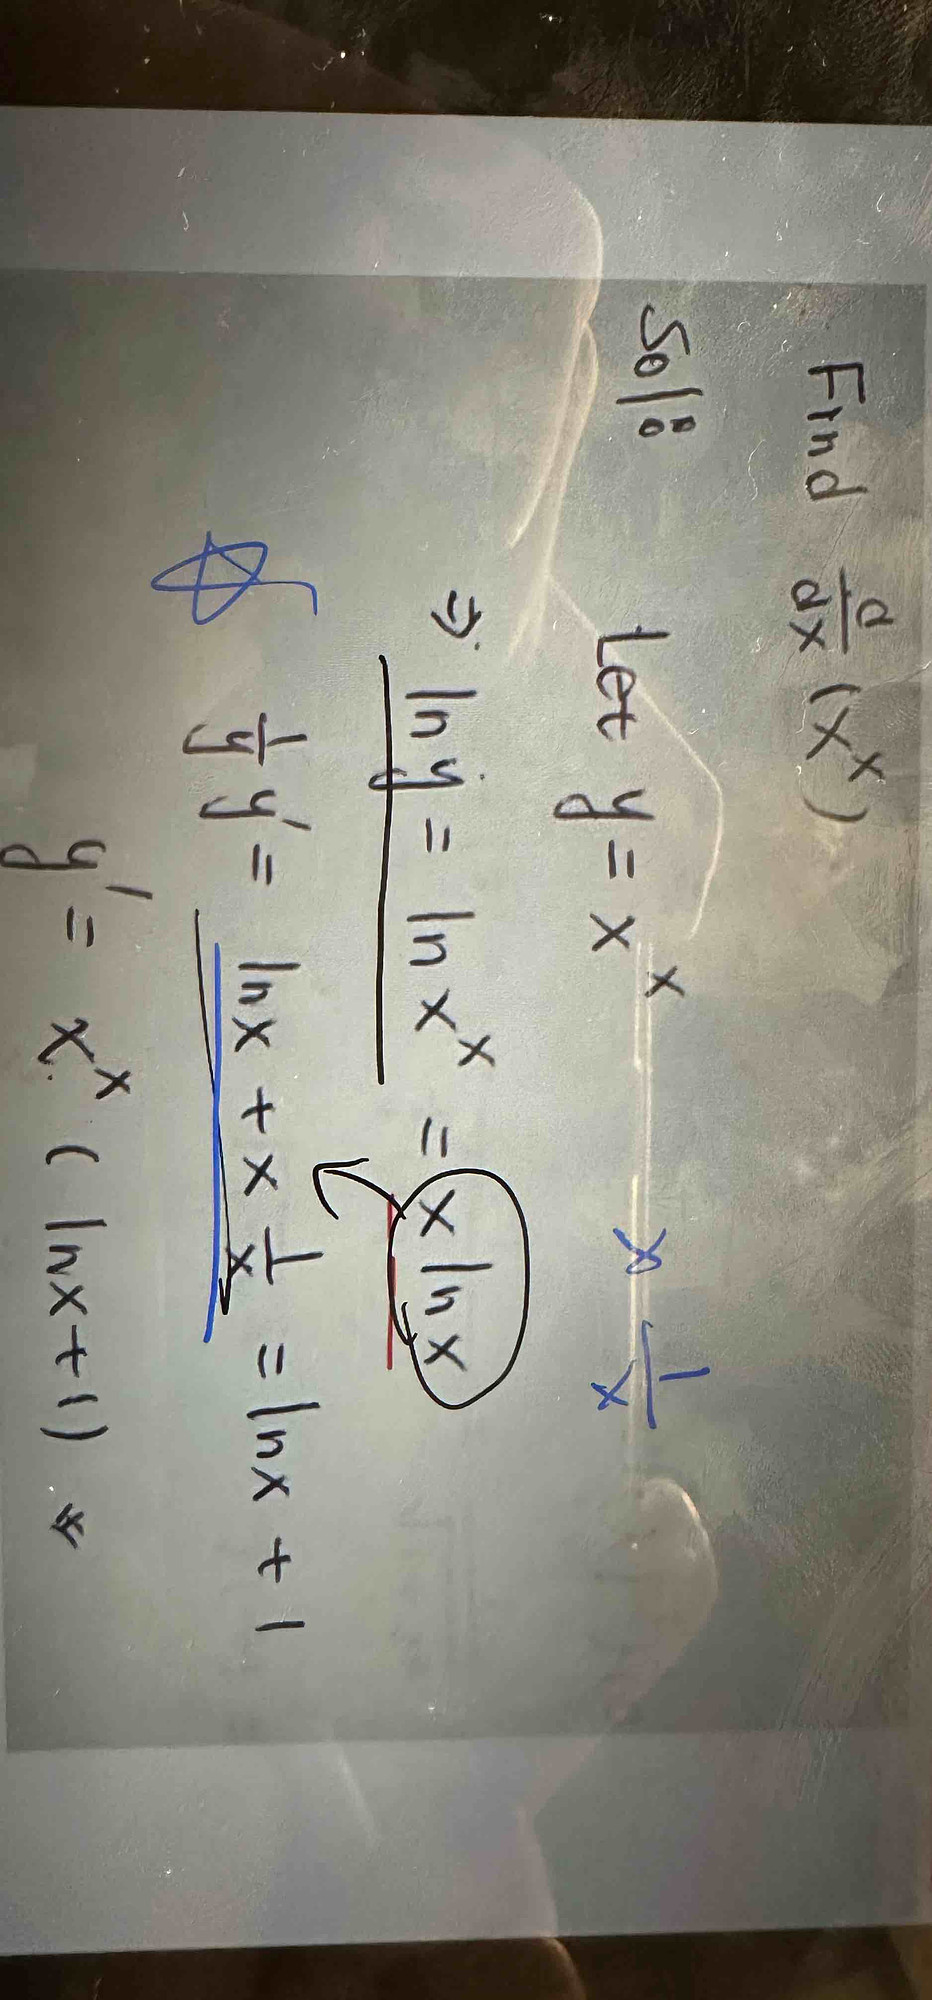 Find d/dx (x^x)
Sol: Let y = x^x x 1/x
⇒ ln y = ln x^x = x ln x
1/y y' = ln x + x 1/x = ln x + 1
y' = x^x ( ln x + 1 )